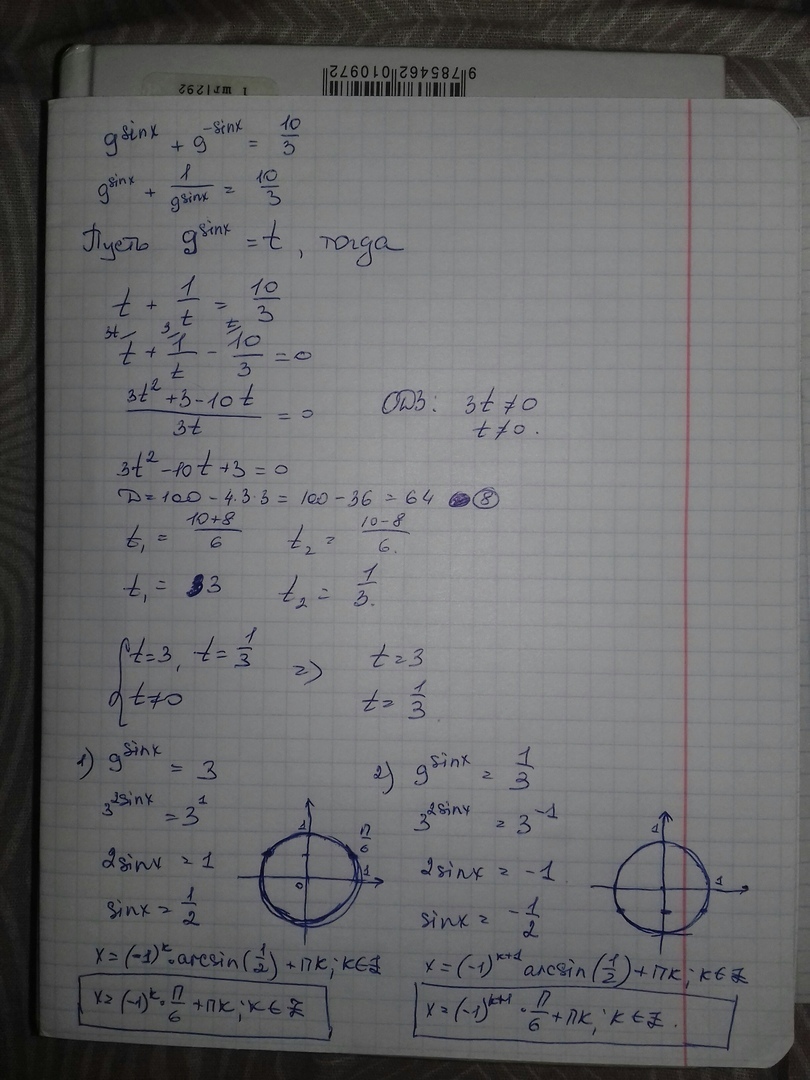 9785462010972
1 шт/292
9^sinx + 9^-sinx = 10/3
9^sinx + 1/9^sinx = 10/3
Пусть 9^sinx = t, тогда
t + 1/t = 10/3
3t/ 3/ t/
t + 1/t - 10/3 = 0
(3t² + 3 - 10t)/3t = 0 ОДЗ: 3t ≠ 0
t ≠ 0.
3t² - 10t + 3 = 0
D = 100 - 4·3·3 = 100 - 36 = 64 (8)
t₁ = (10+8)/6 t₂ = (10-8)/6.
t₁ = 3 t₂ = 1/3.
{ t = 3, t = 1/3 => t = 3
t ≠ 0 t = 1/3
1) 9^sinx = 3
3^2sinx = 3^1
2sinx = 1
sinx = 1/2
1
π/6
1
0
x = (-1)^k · arcsin(1/2) + πk; k ∈ Z
x = (-1)^k · π/6 + πk; k ∈ Z
2) 9^sinx = 1/3
3^2sinx = 3^-1
2sinx = -1
sinx = -1/2
1
1
x = (-1)^k+1 arcsin(1/2) + πk; k ∈ Z
x = (-1)^k+1 · π/6 + πk; k ∈ Z.